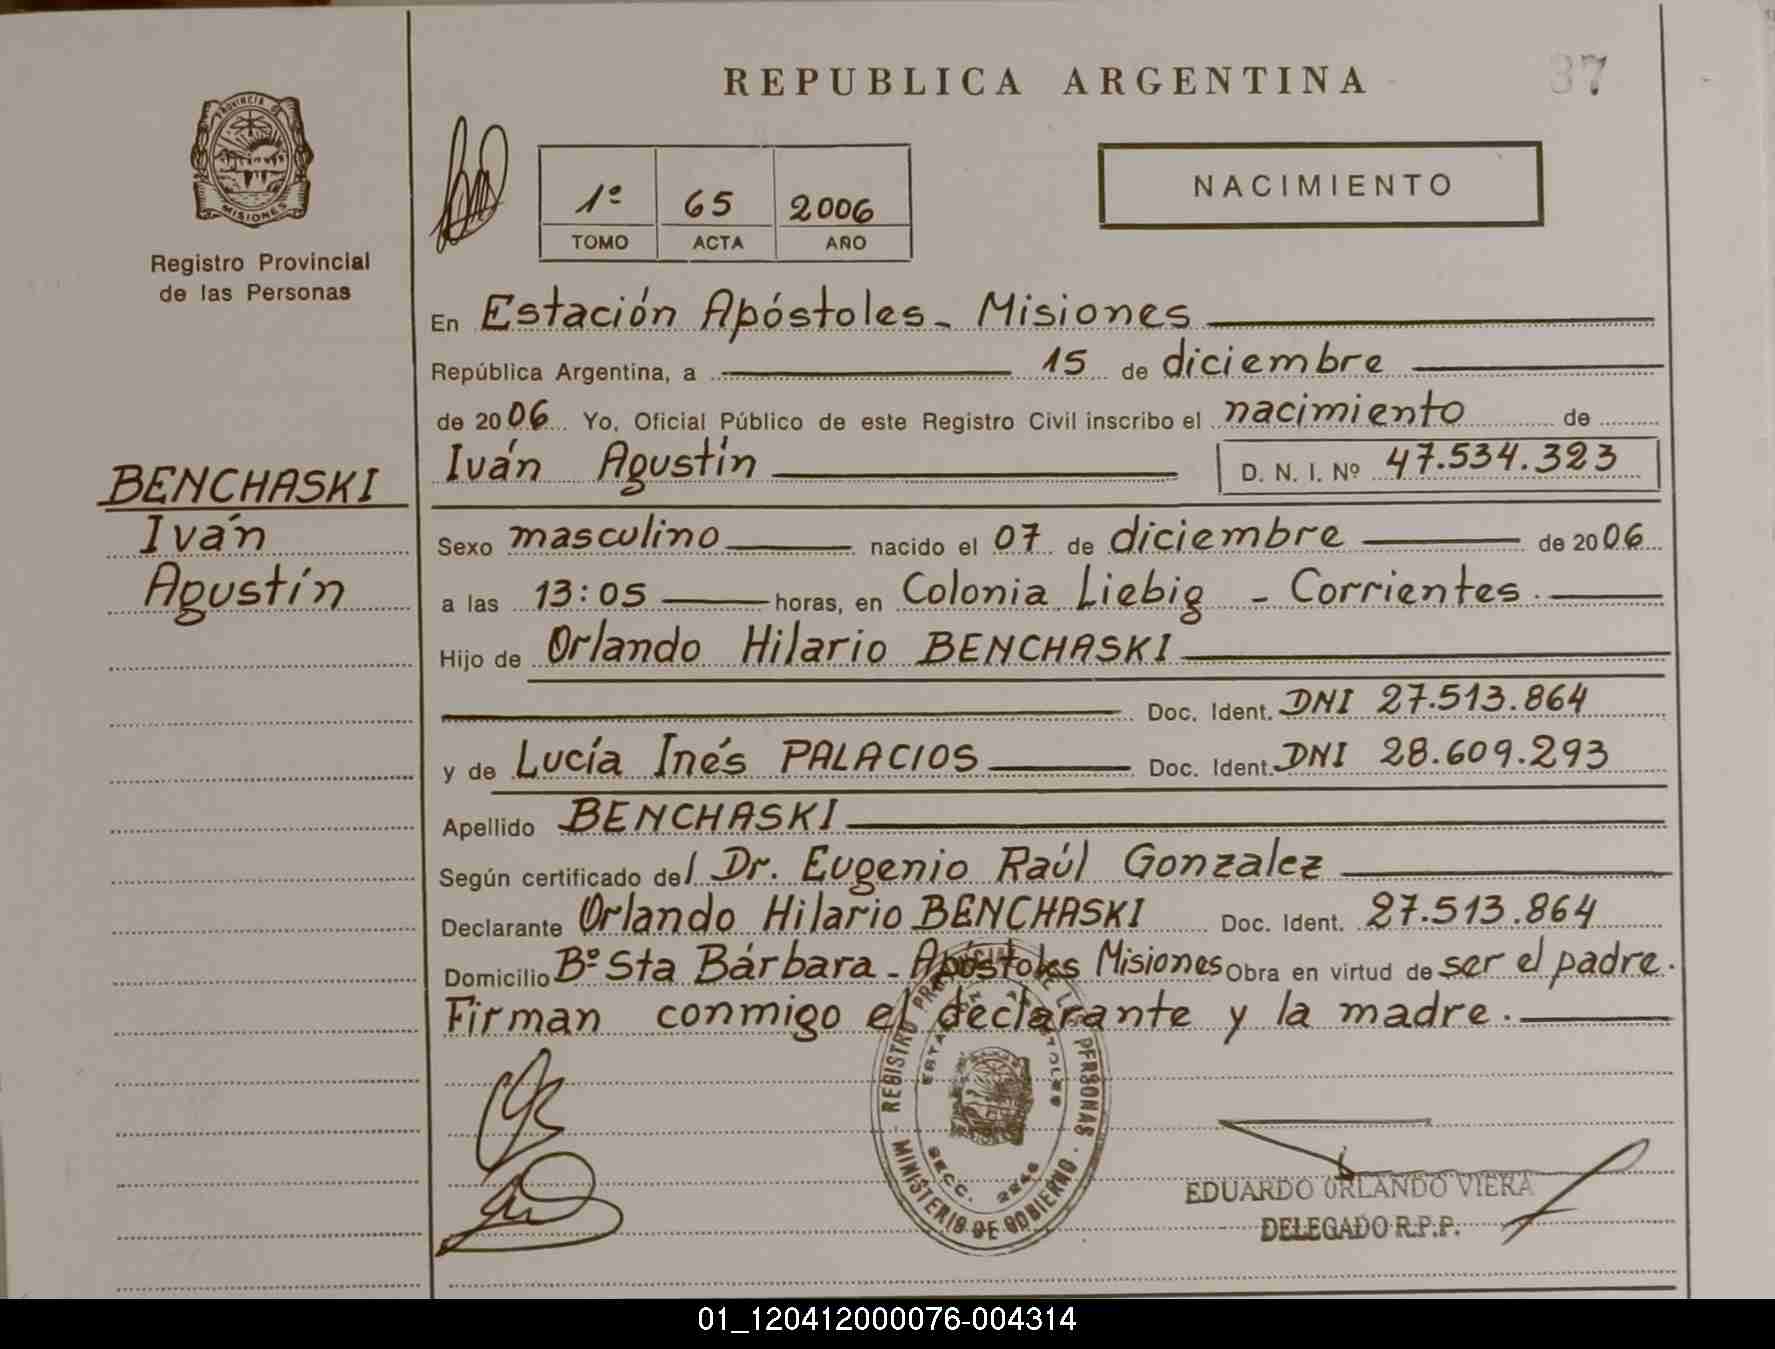 REPUBLICA ARGENTINA
37
PROVINCIA DE
MISIONES
Registro Provincial
de las Personas
1º 65 2006
TOMO ACTA AÑO
NACIMIENTO
En Estación Apóstoles - Misiones
República Argentina, a 15 de diciembre
de 2006 Yo, Oficial Público de este Registro Civil inscribo el nacimiento de
BENCHASKI
Iván
Agustín
Iván Agustín D. N. I. Nº 47.534.323
Sexo masculino nacido el 07 de diciembre de 2006
a las 13:05 horas, en Colonia Liebig - Corrientes.
Hijo de Orlando Hilario BENCHASKI
Doc. Ident. DNI 27.513.864
y de Lucía Inés PALACIOS Doc. Ident. DNI 28.609.293
Apellido BENCHASKI
Según certificado del Dr. Eugenio Raúl Gonzalez
Declarante Orlando Hilario BENCHASKI Doc. Ident. 27.513.864
Domicilio Bº Sta Bárbara - Apóstoles Misiones Obra en virtud de ser el padre.
Firman conmigo el declarante y la madre.
REGISTRO PROVINCIAL DE LAS PERSONAS
MINISTERIO DE GOBIERNO
ESTACIÓN APÓSTOLES
SECC. 2246
EDUARDO ORLANDO VIERA
DELEGADO R.P.P.
01_120412000076-004314